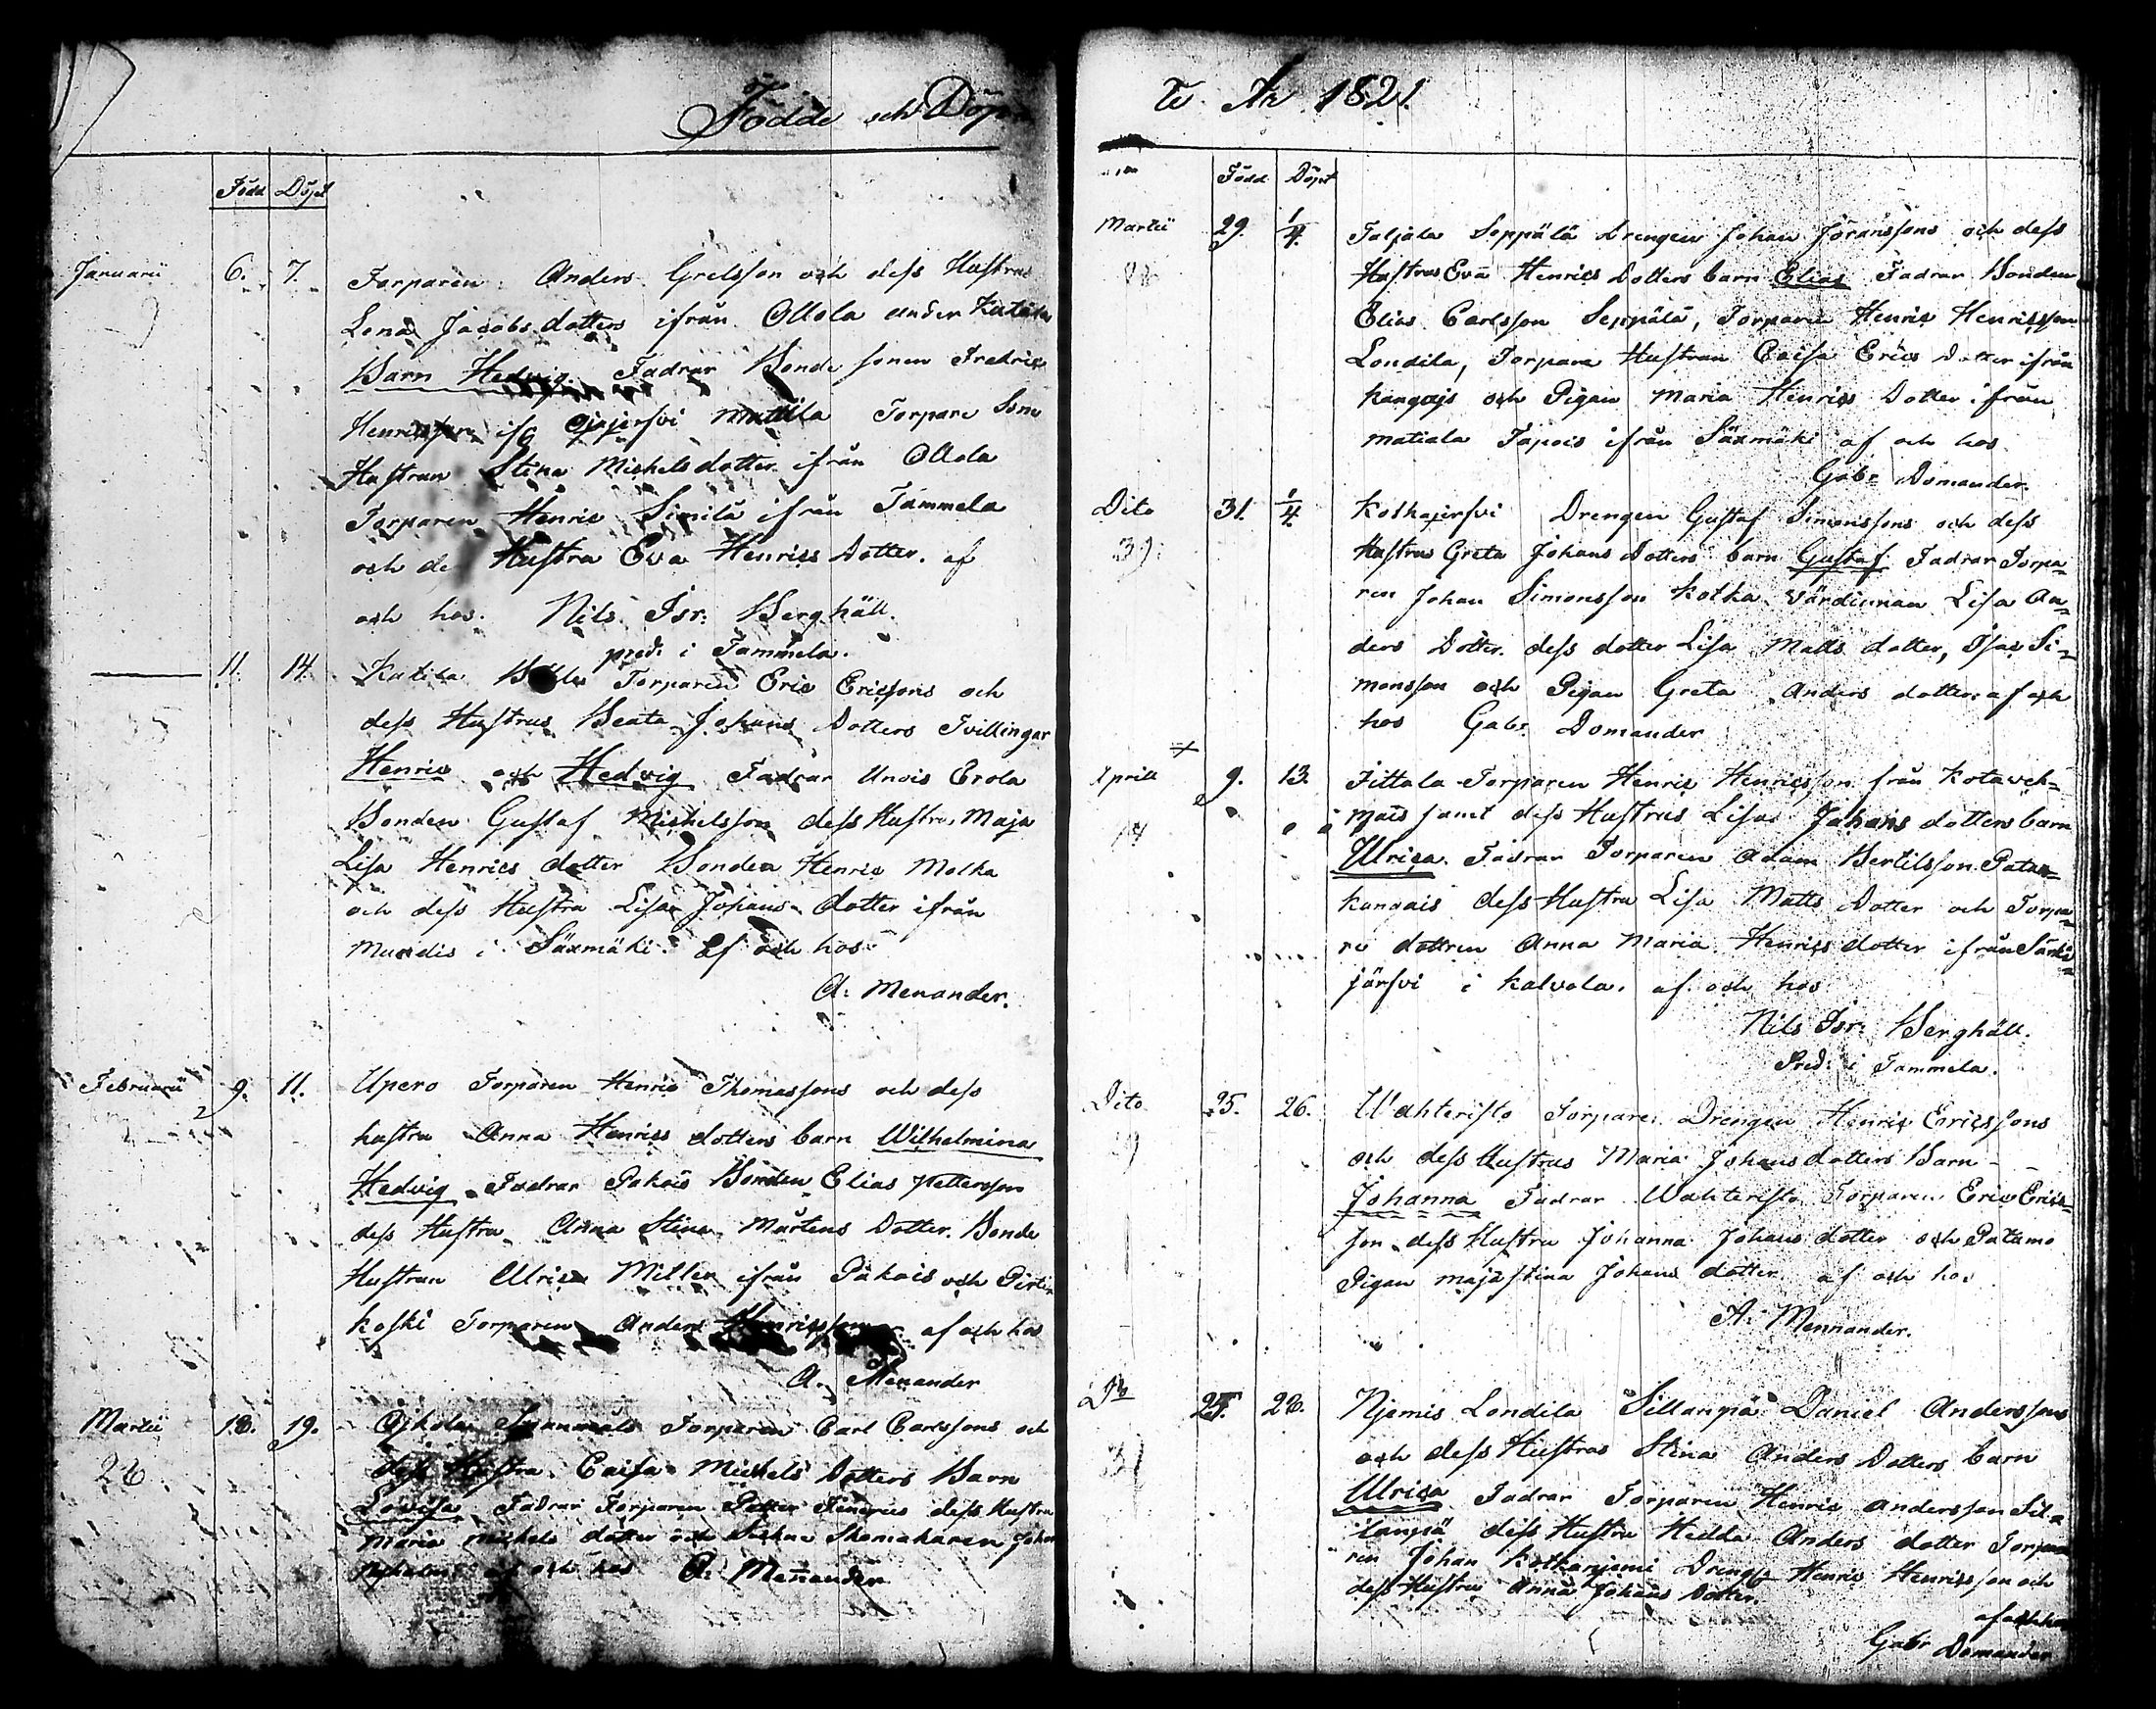 Födde och Döp
Född Döpt
Januarii 6. 7. Torparen Anders Grelsson och dess Hustrus
Lena Jacobs dotters ifrån Ollola under Katila
Barn Hedvig. Fadrar Bonde sonen Fredric
Henricsson Mattila Torpare Sone
Hustrun Stina Michels dotter ifrån Ollola
Torparen Henric Simila ifrån Tammela
och de Hustru Eva Henrics dotter. af
och hos. Nils Isr: Berghäll.
pred: i Tammela.
11. 14. Katila Torparen Eric Ericssons och
dess Hustrus Beata Johans Dotters Tvillingar
Henric och Hedvig Fadrar Unois Erola
Bonden Gustaf Michelsson dess Hustru Maja
Lisa Henrics dotter Bonden Henric Molka
och dess Hustru Lisa Johans dotter ifrån
i Säxmäki. af och hos
A: Menander.
Februarii 9. 11. Upero Torparen Henric Thomassons och dess
hustru Anna Henrics dotters barn Wilhelmina
Hedvig Fadrar Pakais Bonden Elias Pettersson
dess Hustru Anna Stina Mårtens Dotter. Bonde
Hustrun Ulrica Miller ifrån Päkais och Pirti
koski Torparen Anders Henricsson af och hos
A. Menander
Martii 18. 19. Torparen Carl Carlssons och
26 dess Hustru Caisa Michels Dotters Barn
Lovisa Fadrar Torparen Petter dess Hustru
Maria Michels dotter och Skomakaren Johan
af och hos A: Menander
te År 1821.
Född Döpt
Martii 29. 1/4. Taljala Seppälä Drengen Johan Joranssons och dess
Hustrus Eva Henrics Dotters barn Elias Fadrar Bonden
Elias Carlsson Seppälä, Torparen Henric Henricsson
Londila, Torpare Hustrun Caisa Erics Dotter ifrån
Kangais och Pigan Maria Henrics Dotter ifrån
matiala Tapois ifrån Säxmäki af och hos
Gabr Domander.
Dito 31. 1/4. Kotkajerfvi Drengen Gustaf Simonssons och dess
39 Hustrus Greta Johans Dotters barn Gustaf Fadrar Torpa=
ren Johan Simonsson Kotka Värdinnan Lisa An=
ders Dotter. dess dotter Lisa Matts dotter, Isac Si=
monsson och Pigan Greta Anders dotter. af och
hos Gabr Domander
April 9. 13. Jittala Torparen Henric Henricsson från Kotaveh=
mais samt dess Hustrus Lisas Johans dotters barn
Ulrica. Fadrar Torparen Adam Bertilsson Patam=
kangais dess Hustru Lisa Matts Dotter och Torpa=
re dottren Anna Maria Henrics dotter ifrån Särki=
järfvi i Kalvola. af och hos
Nils Isr: Berghäll.
Pred: i Tammela.
Dito 25. 26. Wahteristo Torpare Drengen Henric Ericssons
och dess Hustrus Maria Johans dotters Barn
Johanna Fadrar Wahteristo Torparen Eric Erics=
son dess Hustru Johanna Johans dotter och Patamo
Pigan Maja Stina Johans dotter af och hos
A: Mennander.
Do 25. 28. Njemis Londila Sillanpä Daniel Anderssons
31 och dess Hustrus Stina Anders Dotters barn
Ulrica Fadrar Torparen Henric Andersson Sil=
lanpä dess Hustru Hedda Anders dotter Torpa
ren Johan Kotkanjemi Dreng Henric Henricsson och
dess Hustru Anna Johans Dotter.
af och hos
Gabr Domander